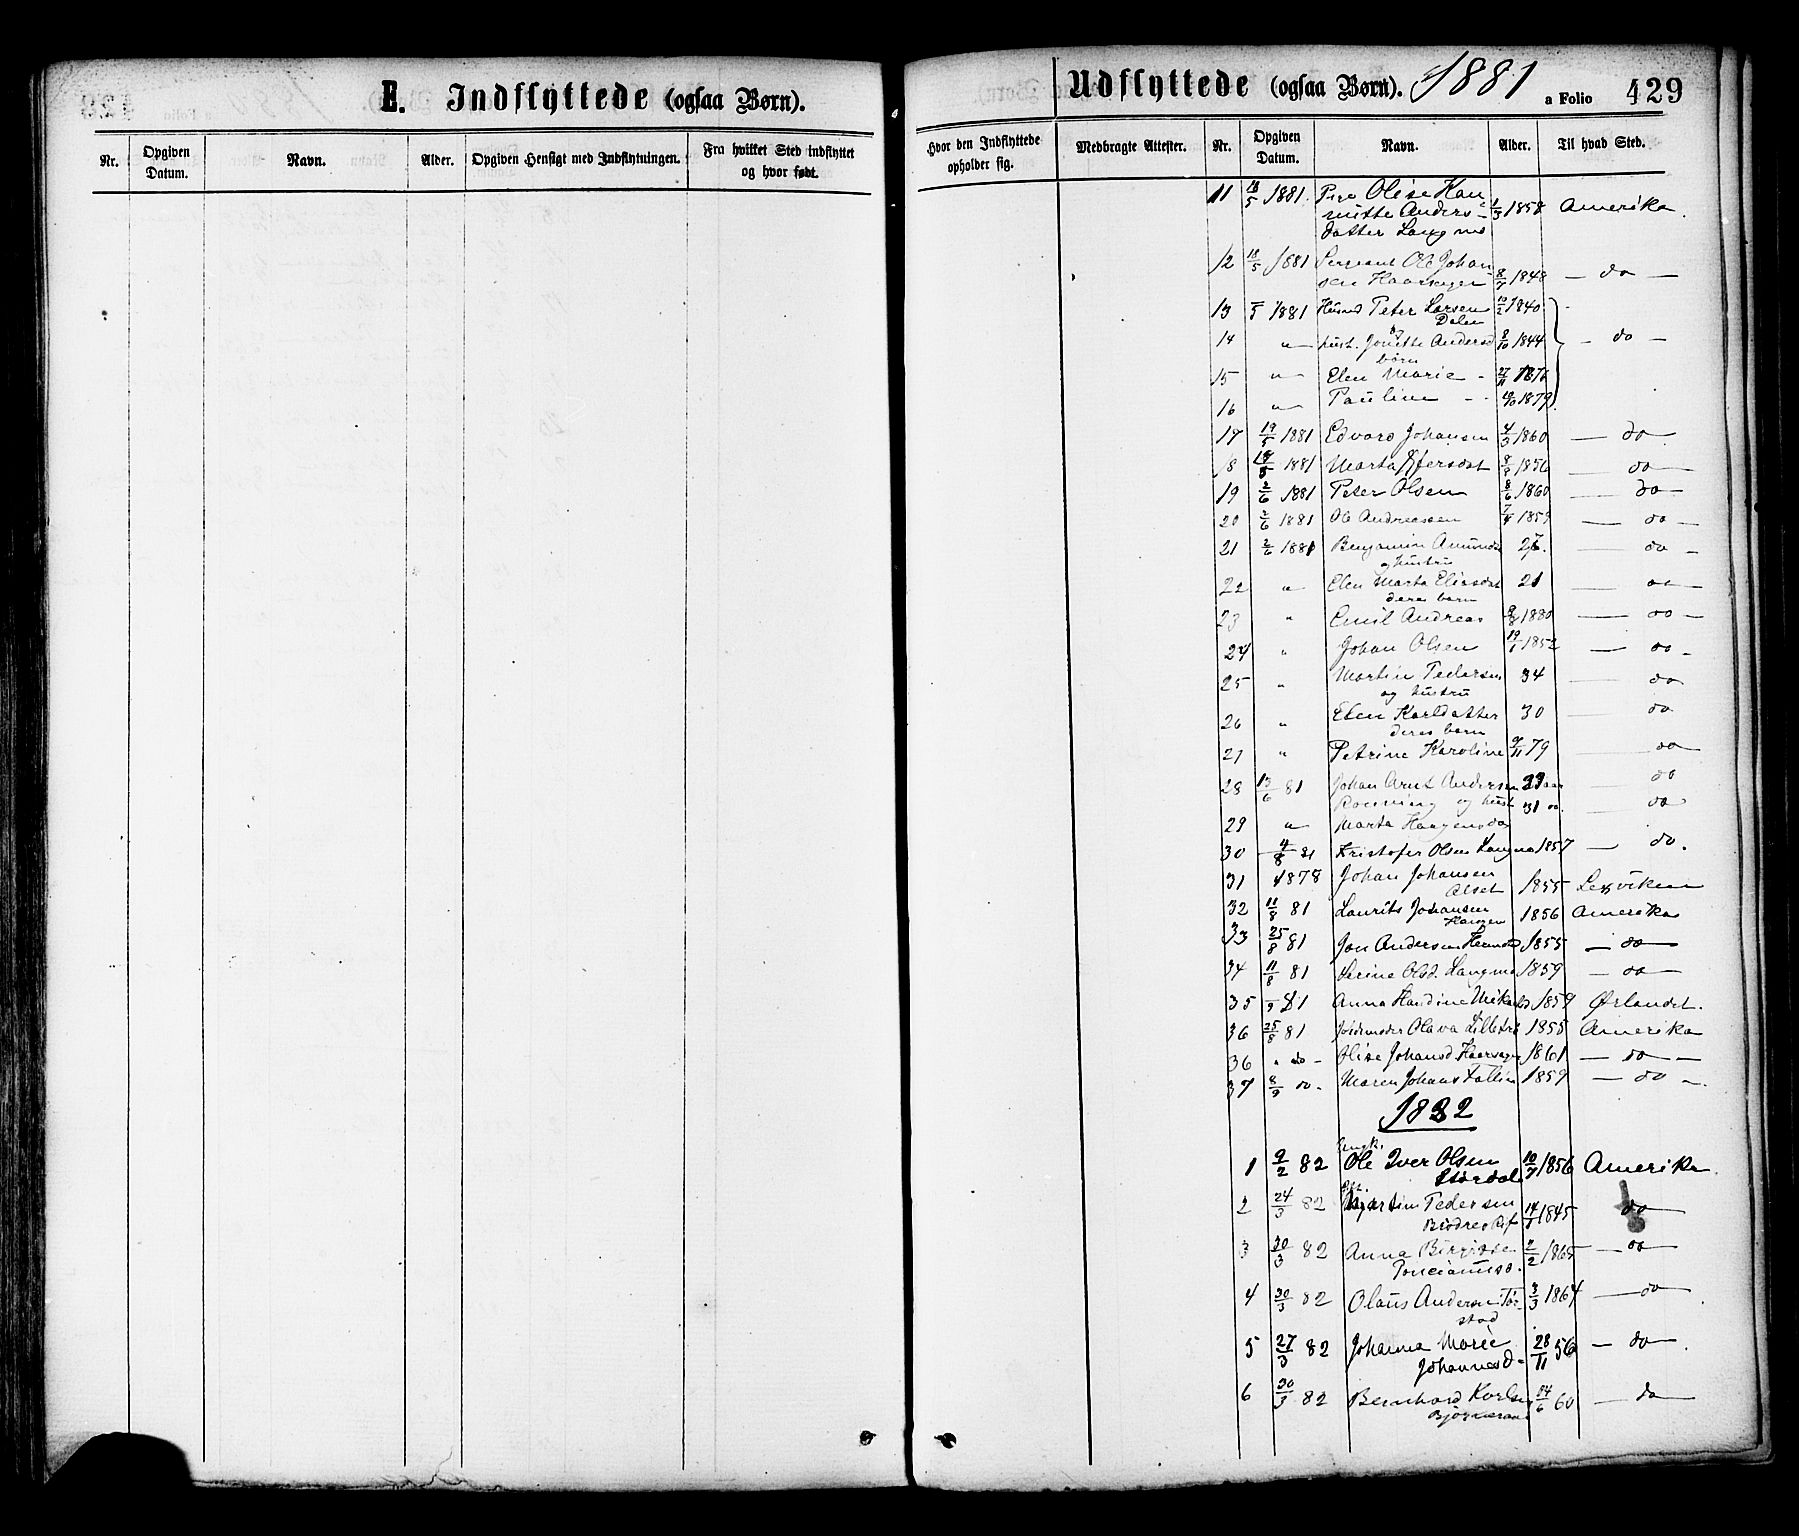 E. Indflyttede (ogsaa Børn).
Nr. Opgiven Datum. Navn. Alder. Opgiven Hensigt med Indflytningen. Fra hvilket Sted indflyttet og hvor født.
Udflyttede (ogsaa Børn). 1881 a Folio 429
Hvor den Indflyttede opholder sig. Medbragte Attester. Nr. Opgiven Datum. Navn. Alder. Til hvad Sted.
11 18/5 1881. Pige Olise
Anders-
datter 1/3 1858 Amerika.
12 18/5 1881 Sergeant Ole Johan-
sen 8/7 1848 — do —
13 1881 Peter Larsen 10/2 1840
Dalen
og
14 " hust. Jonette Andersd 8/10 1844 — do —
børn
15 " Elen Marie - 27/11 1876
16 " Pauline - - 1879
17 19/5 1881 Edvard Johansen 4/3 1860 — do
18 1881 Marta 1856 — do —
19 2/6 1881 Peter Olsen 8/6 1860 — do —
20 2/6 1881 Ole Andreassen 7/4 1859 — do —
21 2/6 1881 Benjamin — do —
og hustru
22 " Elen Marta Eliasdat 21 — do —
deres barn
23 " Emil Andreas 1880 — do —
24 " Johan Olsen 19/1 1852 — do —
25 " Martin Pedersen 34 — do
og hustru
26 " Elen Karldatter 30 — do
deres barn
27 " Petrine Karoline 9/11 79 — do
28 13/6 81 Johan Arnt Andersen 33 aar — do
Rönning og hust 31 do. — do
29 " Marta Haagensda
30 4/8 81 Kristofer Olsen Langmo 1857 — do.
31 1878 Johan Johansen
Alset 1855 Lexviken
32 11/8 81 Laurits Johansen
Haugen 1856 Amerika
33 25/8 81 Jon Andersen 1855 — do —
34 11/8 81 Serine Olsd. Langmo 1859 — do —
35 81 Anna 1859 Ørlandet.
36 25/8 81 Jordemoder Olava 1855 Amerika
36 " do - Olise Johansd 1861 — do —
37 8/9 do. Maren Johans 1859 — do —.
1882
1 9/2 82 Ungk.
Ole Iver Olsen
Størdal 10/7 1856 Amerika.
2 24/3 82 Martin Pedersen
1845 do
3 30/3 82 Anna
2/2 1865 — do —
4 30/3 82 Olaus Andersen Tør-
stad 3/3 1864 — do —
5 27/3 82 Johanna Marie
Johannesd - 28/11 56 — do —.
6 30/3 82 Bernhard Karlsen 14/6 60 — do —